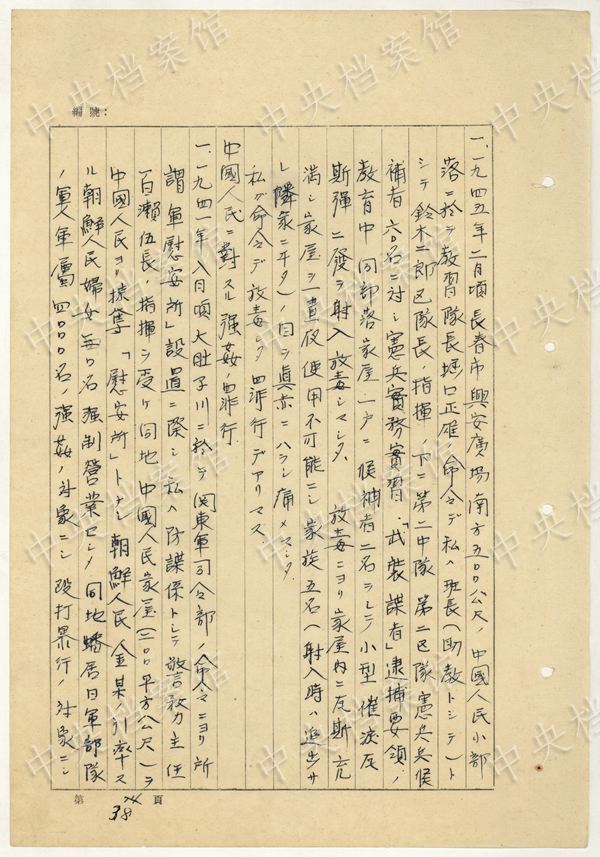 編號：
一、一九四五年二月頃長春市興安廣場南方五〇〇公尺ノ中國人民小部
落ニ於テ教習隊長堀口正雄ノ命令デ私ハ班長（助教トシテ）ト
シテ鈴木二郎区隊長ノ指揮ノ下ニ第二中隊第二区隊憲兵兵候
補者六〇名ニ対シ憲兵實務實習「武裝諜者」逮捕要領ノ
教育中同部落家屋一戸ニ候補者二名ヲシテ小型催淚瓦
斯彈二発ヲ射入放毒シマシタ、放毒ニヨリ家屋内ニ瓦斯充
満シ家屋ヲ一晝夜使用不可能ニシ家族五名（射入時ハ追出サ
レ隣家ニヰタ）ノ目ヲ眞赤ニハラシ痛メマシタ、
私ガ命令デ放毒シタ罪行デアリマス
中國人民ニ對スル强姦ノ罪行
一、一九四一年八月頃大肚子川ニ於テ関東軍司令部ノ命令ニヨリ所
謂「軍慰安所」設置ニ際シ私ハ防諜係トシテ警務主任
百瀬伍長ノ指揮ヲ受ケ同地中國人民家屋（二〇〇平方公尺）ヲ
中國人民ヨリ掠奪「慰安所」トナシ朝鮮人民金某ノ引率ス
ル朝鮮人民婦女二〇名强制営業セシメ同地蟠居日軍部隊
ノ軍人軍屬四〇〇〇名ノ强姦ノ対象ニシ毆打暴行ノ対象ニシ
第 頁
38
中央档案馆